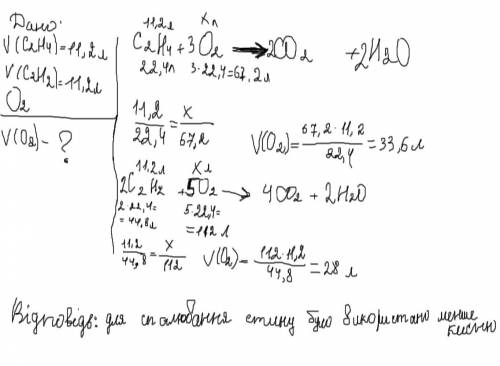 Дано:
V(C2H4)=11,2л
V(C2H2)=11,2л
O2
V(O2)-?
11,2л хл
C2H4+3O2 → 2CO2 +2H2O
22,4л 3·22,4=67,2л
11,2/22,4=х/67,2 V(O2)=67,2·11,2/22,4=33,6л
11.2л хл
2C2H2 +5O2 → 4CO2+2H2O
2·22,4= 5·22,4=
=44,8л =112 л
11,2/44,8=х/112 V(O2)=112·11,2/44,8=28 л
Відповідь: для спалювання етину було використано менше
кисню